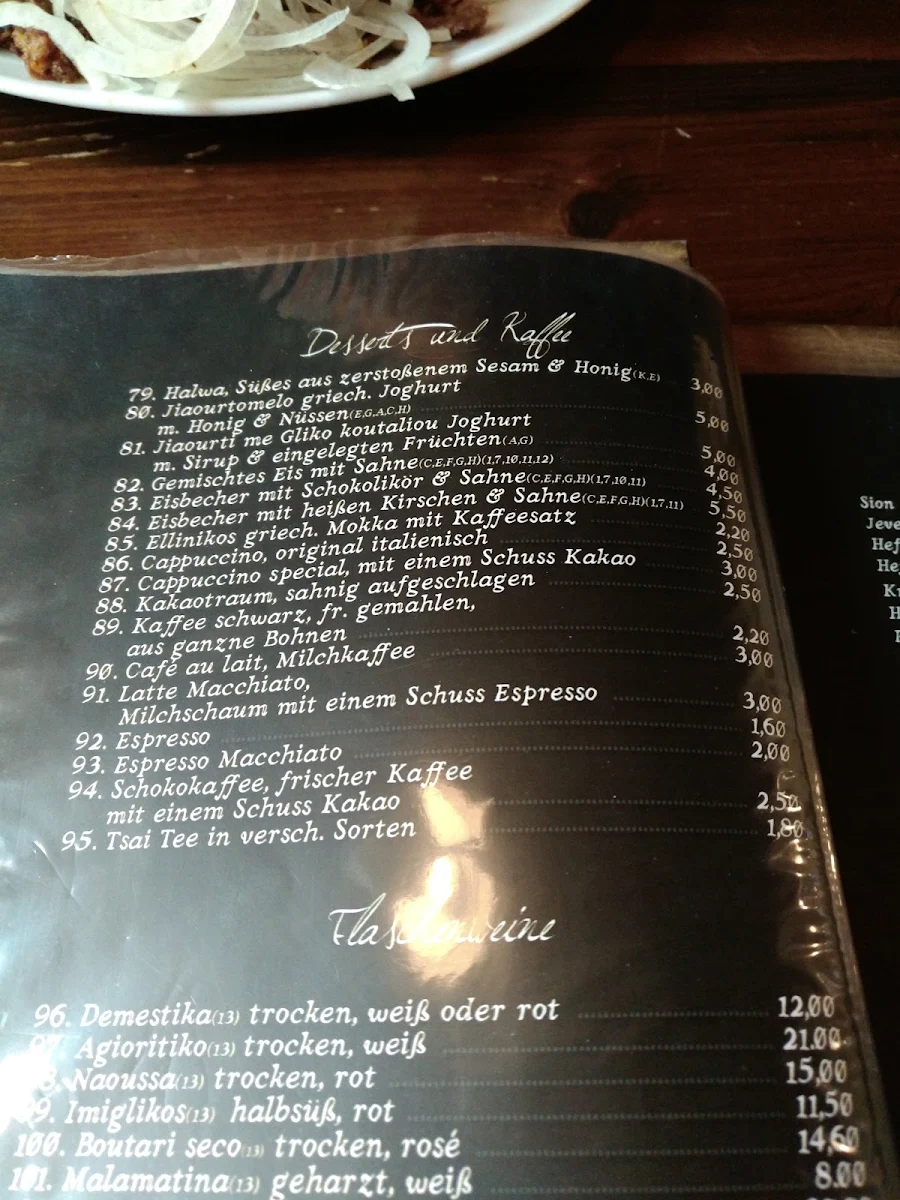 Desserts und Kaffee
79. Halwa, Süßes aus zerstoßenem Sesam & Honig(K,E) 3,00
80. Jiaourtomelo griech. Joghurt
m. Honig & Nüssen(E,G,A,C,H) 5,00
81. Jiaourti me Gliko koutaliou Joghurt
m. Sirup & eingelegten Früchten(A,G) 5,00
82. Gemischtes Eis mit Sahne(C,E,F,G,H)(1,7,10,11,12) 4,00
83. Eisbecher mit Schokolikör & Sahne(C,E,F,G,H)(1,7,10,11) 4,50
84. Eisbecher mit heißen Kirschen & Sahne(C,E,F,G,H)(1,7,11) 5,50
85. Ellinikos griech. Mokka mit Kaffeesatz 2,20
86. Cappuccino, original italienisch 2,50
87. Cappuccino special, mit einem Schuss Kakao 3,00
88. Kakaotraum, sahnig aufgeschlagen 2,50
89. Kaffee schwarz, fr. gemahlen,
aus ganzne Bohnen 2,20
90. Café au lait, Milchkaffee 3,00
91. Latte Macchiato,
Milchschaum mit einem Schuss Espresso 3,00
92. Espresso 1,60
93. Espresso Macchiato 2,00
94. Schokokaffee, frischer Kaffee
mit einem Schuss Kakao 2,50
95. Tsai Tee in versch. Sorten 1,80
Flaschenweine
96. Demestika(13) trocken, weiß oder rot 12,00
97. Agioritiko(13) trocken, weiß 21.00
Naoussa(13) trocken, rot 15,00
99. Imiglikos(13) halbsüß, rot 11,50
100. Boutari seco(13) trocken, rosé 14,60
101. Malamatina(13) geharzt, weiß 8.00
Sion
Jeve
Hef